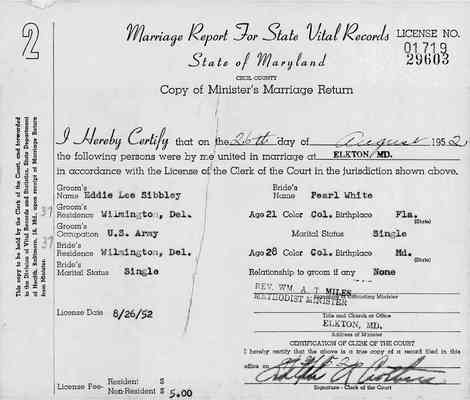 2
Marriage Report For State Vital Records
LICENSE NO.
01719
29603
State of Maryland
CECIL COUNTY
Copy of Minister's Marriage Return
I Hereby Certify that on the 26th day of August 1952
the following persons were by me united in marriage at ELKTON, MD.
in accordance with the License of the Clerk of the Court in the jurisdiction shown above.
Groom's Name Eddie Lee Sibbley Bride's Name Pearl White
37 Groom's Residence Wilmington, Del. Age 21 Color Col. Birthplace Fla.
(State)
Groom's Occupation U.S. Army Marital Status Single
37 Bride's Residence Wilmington, Del. Age 28 Color Col. Birthplace Md.
(State)
Bride's Marital Status Single Relationship to groom if any None
REV. WM. A. T MILES
METHODIST MINISTER
Signature of Officiating Minister
Title and Church or Office
License Date 8/26/52 ELKTON, MD.
Address of Minister
CERTIFICATION OF CLERK OF THE COURT
I hereby certify that the above is a true copy of a record filed in this
office on
Signature - Clerk of the Court
License Fee- Resident $
Non-Resident $ 5.00
This copy to be held by the Clerk of the Court, and forwarded
to the Division of Vital Records and Statistics, State Department
of Health, Baltimore, 18, Md., upon receipt of Marriage Return
from Minister.